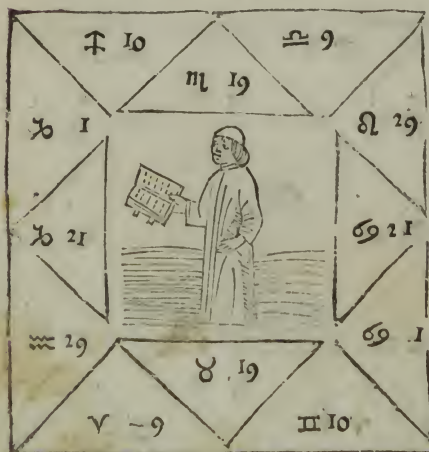 ♐ 10 ♎ 9
♏ 19
♑ 1 ♌ 29
♑ 21 ♋ 21
♒ 29 ♋ 1
♉ 19
♈ 9 ♊ 10